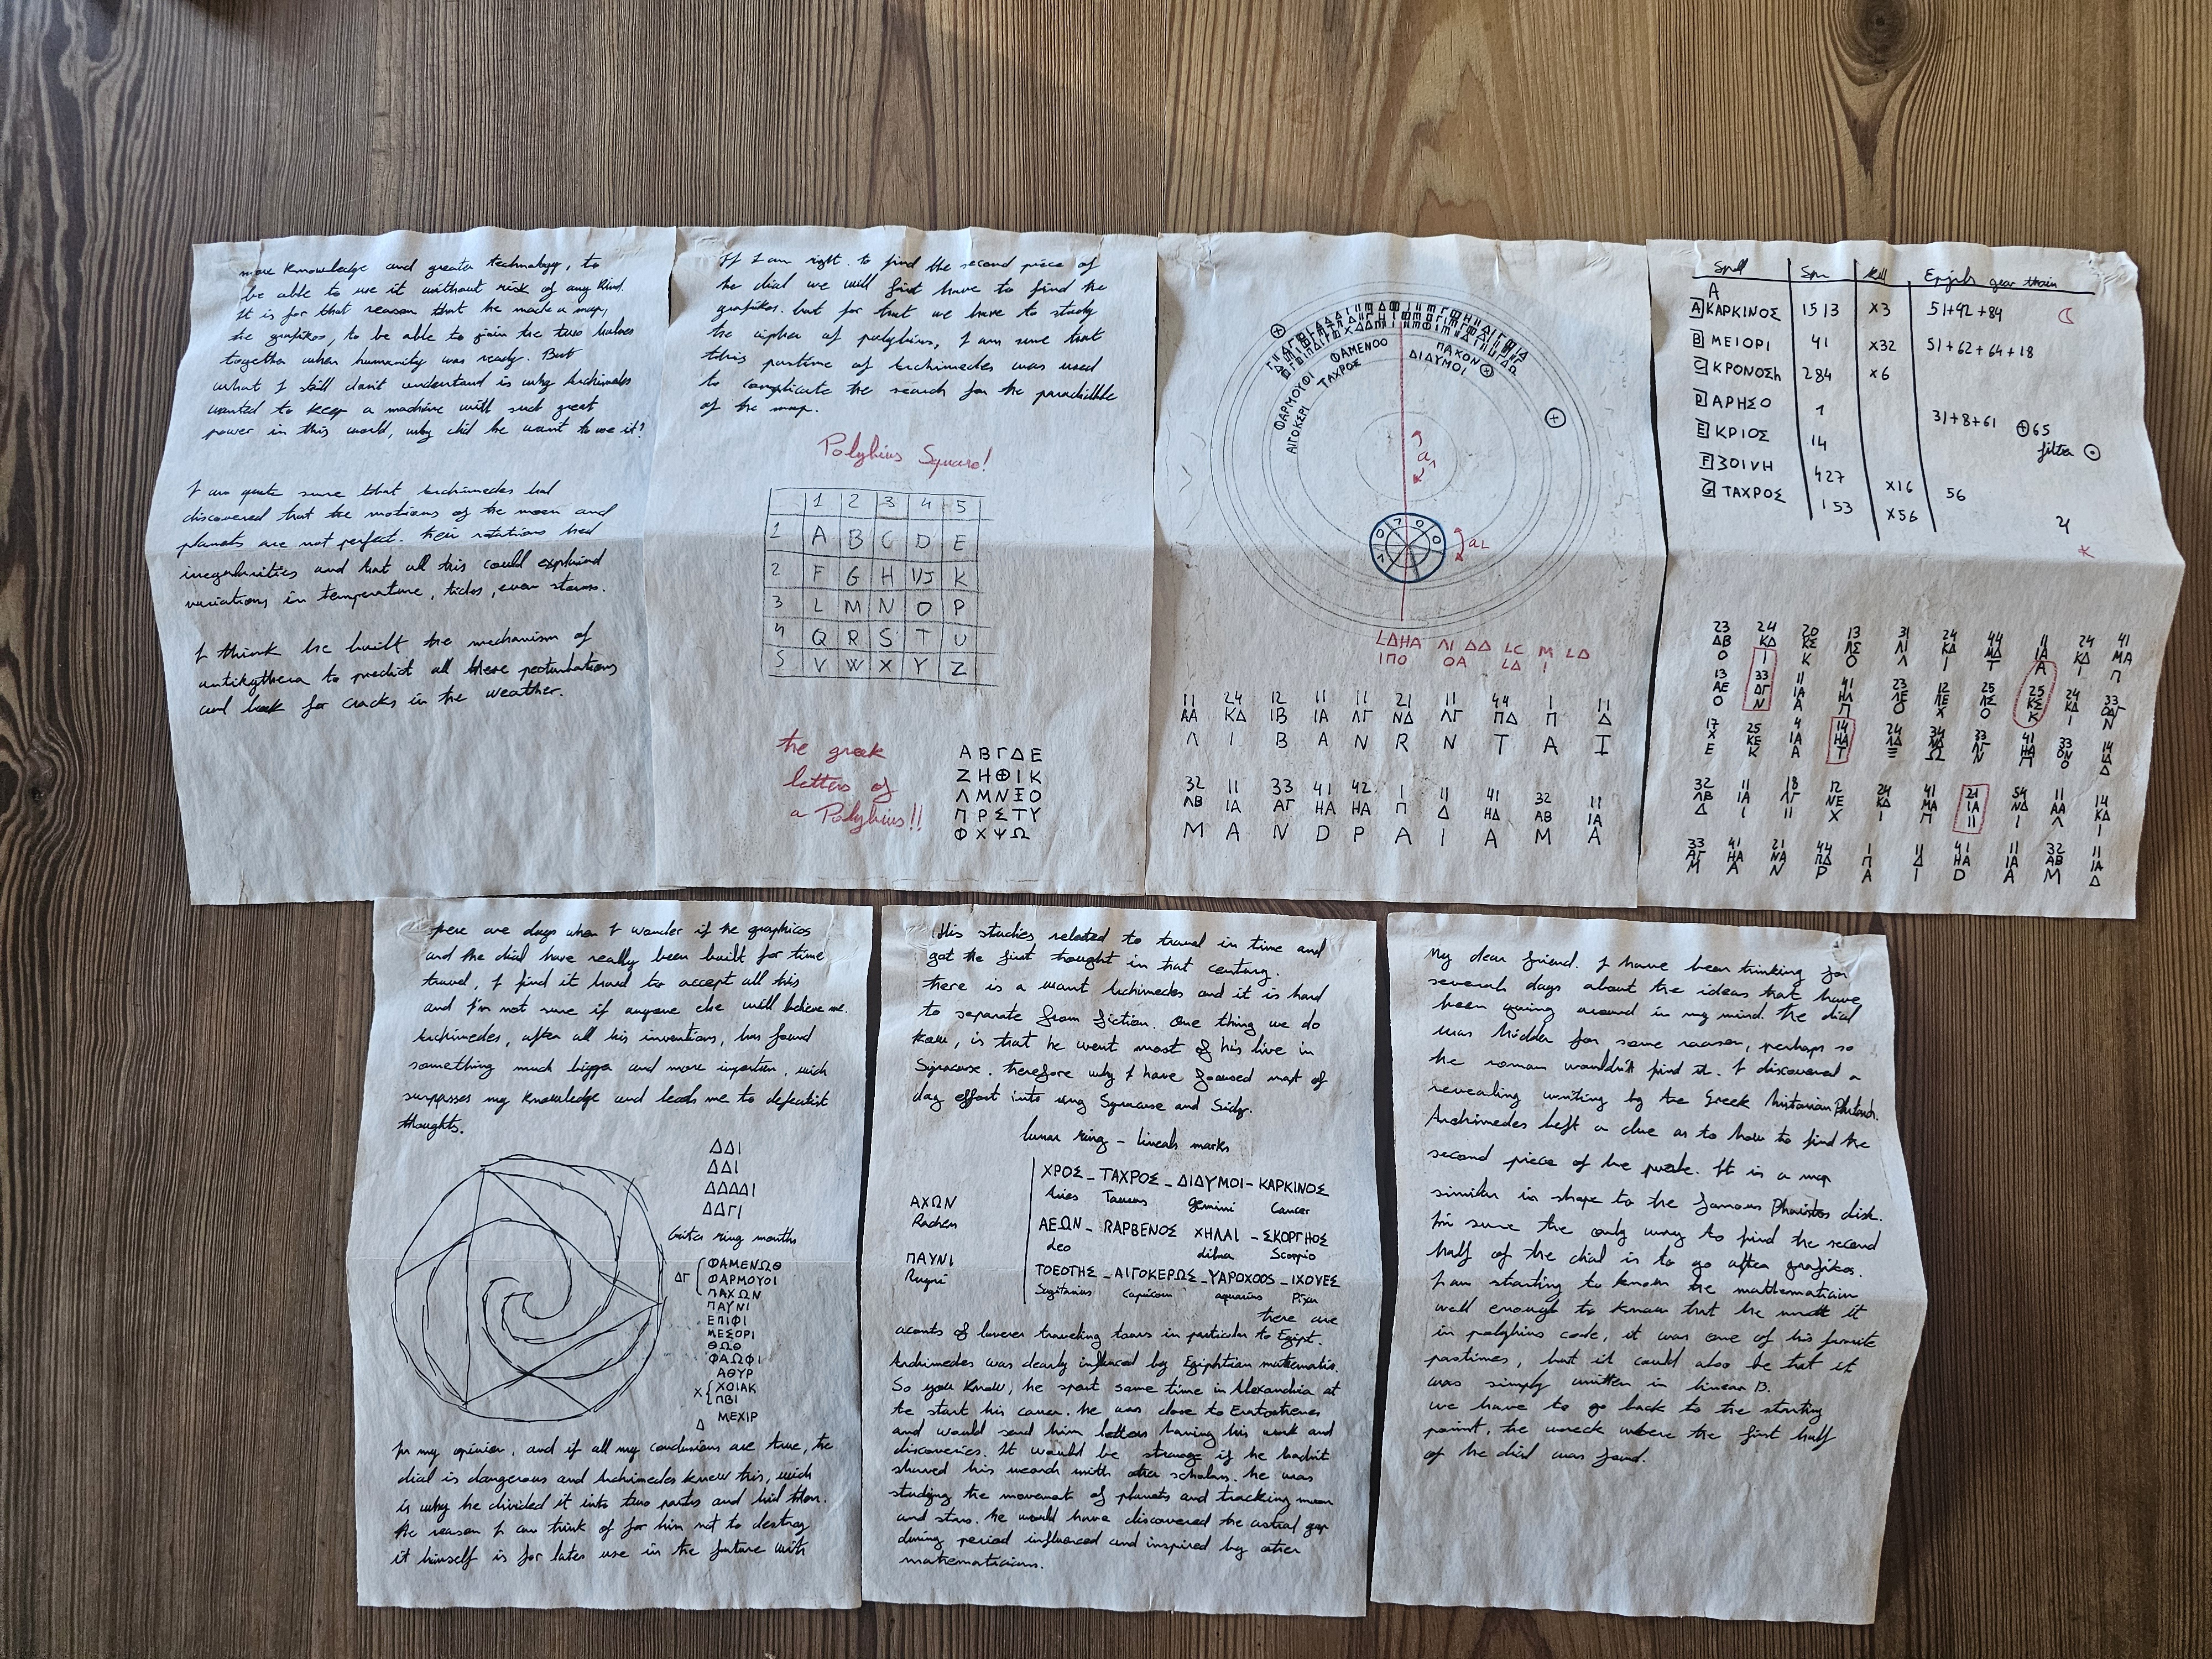 more knowledge and greater technology, to
be able to use it without risk of any kind.
It is for that reason that he made a map,
the grafikos, to be able to join the two halves
together when humanity was ready. But
what I still don't understand is why Archimedes
wanted to keep a machine with such great
power in this world, why did he want to use it?
I am quite sure that Archimedes had
discovered that the motions of the moon and
planets are not perfect. their rotations had
irregularities and that all this could explained
variations in temperature, tides, even storms.
I think he built the mechanism of
antikythera to predict all these pertubations
and look for cracks in the weather.
If I am right. to find the second piece of
he dial we will first have to find the
grafikos. but for that we have to study
the cipher of polybius, I am sure that
this pastime of Archimedes was used
to complicate the search for the
of the map.
Polybius Square!
1 2 3 4 5
1 A B C D E
2 F G H I/J K
3 L M N O P
4 Q R S T U
5 V W X Y Z
the greek
letters of
a Polybius!!
Α Β Γ Δ Ε
Ζ Η Θ Ι Κ
Λ Μ Ν Ξ Ο
Π Ρ Σ Τ Υ
Φ Χ Ψ Ω
ΦΑΡΜΟΥΦΙ ΦΑΜΕΝΟΟ ΠΑΧΟΝ
ΑΙΓΟΚΕΡΙ ΤΑΧΡΟΣ ΔΙΔΥΜΟΙ
LΔΗΑ ΛΙ ΔΔ LC M LΔ
ΙΠΟ ΟΑ LΔ Ι
11 24 12 11 11 21 11 44 1 11
ΑΑ ΚΔ ΙΒ ΙΑ ΛΓ ΝΔ ΛΓ ΠΔ Π Δ
Λ I B A N R N T A I
32 11 33 41 42 1 11 41 32 11
ΛΒ ΙΑ ΑΓ ΗΑ ΗΑ Π Δ ΗΔ ΑΒ ΙΑ
M A N D P A I A M A
Spell Spn Kill Epijels gear train
A
A ΚΑΡΚΙΝΟΣ 1513 x3 51+42+84
B ΜΕΙΟΡΙ 41 x32 51+62+64+18
C ΚΡΟΝΟΣh 284 x6
D ΑΡΗΣΟ 1 31+8+61 ⊕65
E ΚΡΙΟΣ 14 filter ⊙
F ΒΟΙΝΗ 427 x16 56
G ΤΑΧΡΟΣ 153 x56
23 24 20 13 31 24 44 11 24 41
ΔΒ ΚΔ ΚΑ ΛΣ ΛΙ ΚΔ ΜΔ ΙΑ ΚΔ ΜΑ
O I K O Λ I T A I Π
13 33 11 41 23 12 25 25 24 33
ΑΕ ΔΓ ΙΑ ΗΛ ΛΕ ΛΕ ΛΣ ΚΣ ΚΔ ΟΔΓ
O N A Π O X O K I N
17 25 4 14 24 34 33 41 33 14
X ΚΕ ΙΑ ΗΔ ΛΔ ΝΩ ΛΓ ΗΑ ΟΝ ΙΔ
E K A T Ξ Ω N Π O Δ
32 11 18 12 24 41 21 54 11 14
ΛΒ ΙΑ ΛΓ ΝΕ ΚΔ ΜΑ ΙΑ ΝΔ ΑΑ ΚΔ
Δ I II X I Π II I Λ I
33 41 21 44 1 11 41 11 32 11
ΑΓ ΗΑ ΝΑ ΠΔ Π Δ ΗΑ ΙΑ ΑΒ ΙΑ
M A N P A I D A M Δ
there are days when I wonder if the graphicos
and the dial have really been built for time
travel, I find it hard to accept all this
and I'm not sure if anyone else will believe me.
Archimedes, after all his inventions, has found
something much bigger and more, wich
surpasses my knowledge and leads me to defeatist
thoughts.
ΔΔΙ
ΔΔΙ
ΔΔΔΔΙ
ΔΔΓΙ
ring months
ΦΑΜΕΝΩΘ
ΔΓ ΦΑΡΜΟΥΟΙ
ΠΑΧΩΝ
ΠΑΥΝΙ
ΕΠΙΦΙ
ΜΕΣΟΡΙ
ΘΩΘ
ΦΑΩΦΙ
ΑΘΥΡ
Χ ΧΟΙΑΚ
ΠΒΙ
Δ ΜΕΧΙΡ
In my opinion, and if all my conclusions are true, the
dial is dangerous and Archimedes knew this, wich
is why he divided it into two parts and hid them.
the reason I can think of for him not to destroy
it himself is for later use in the future with
His studies related to travel in time and
got the first thought in that century.
there is a want Archimedes and it is hard
to separate from fiction. One thing we do
know, is that he went most of his live in
Syracuse. therefore why I have focused most of
day effort into Syracuse and
lunar ring - lineals marks
ΧΡΟΣ - ΤΑΧΡΟΣ - ΔΙΔΥΜΟΙ - ΚΑΡΚΙΝΟΣ
Aries Taurus Gemini Cancer
ΑΧΩΝ ΑΕΩΝ - RΑΡΒΕΝΟΣ ΧΗΛΑΙ - ΣΚΟΡΓΗΟΣ
Rachem Leo Libra Scorpio
ΠΑΥΝΙ ΤΟΕΟΤΗΣ - ΑΙΓΟΚΕΡΩΣ - ΥΑΡΟΧΟΟS - ΙΧΟΥΕΣ
Sagitarius Capricorn aquarius
there are
aconts of traveling tears in particular to Egipt.
Archimedes was clearly influced by Egiphtian mathematis.
So you know, he spent some time in Alexandria at
the start his career. he was close to Eratostenes
and would send him letters having his work and
discoveries. It would be strange if he hadn't
shared his work with other scholars. he was
studing the movement of planets and tracking moon
and stars. he would have discovered the astral gap
during period influenced and inspired by other
mathematicians.
My dear friend. I have been thinking for
several days about the ideas that have
been going around in my mind. the dial
was hidden for some reason, perhaps so
the roman wouldn't find it. I discovered a
revealing writing by the Greek historian Plutarch.
Archimedes left a clue as to how to find the
second piece of the puzzle. It is a map
similar in shape to the famous Phaistos disk.
I'm sure the only way to find the second
half of the dial is to go after grafikos.
I am starting to know the mathematician
well enough to know that he made it
in polybius code, it was one of his favorite
pastimes, but it could also be that it
was simply written in linear B.
we have to go back to the starting
point, the wreck where the first half
of the dial was found.